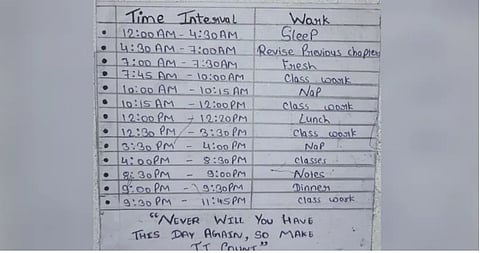 Time Interval Wark
• 12:00 AM - 4:30AM Sleep
• 4:30 AM - 7:00AM Revise Previous chapters
• 7:00 AM - 7:30AM Fresh
• 7:45 AM - 10:00AM Class work
• 10:00 AM - 10:15 AM Nap
• 10:15 AM - 12:00PM class work
• 12:00 PM - 12:20PM Lunch
• 12:30 PM - 3:30PM class work
• 3:30 PM - 4:00PM Nap
• 4:00 PM - 8:30PM classes
• 8:30 PM - 9:00PM Notes
• 9:00 PM - 9:30PM Dinner
• 9:30 PM - 11:45PM class work
"NEVER WILL YOU HAVE
THIS DAY AGAIN, SO MAKE
IT COUNT"